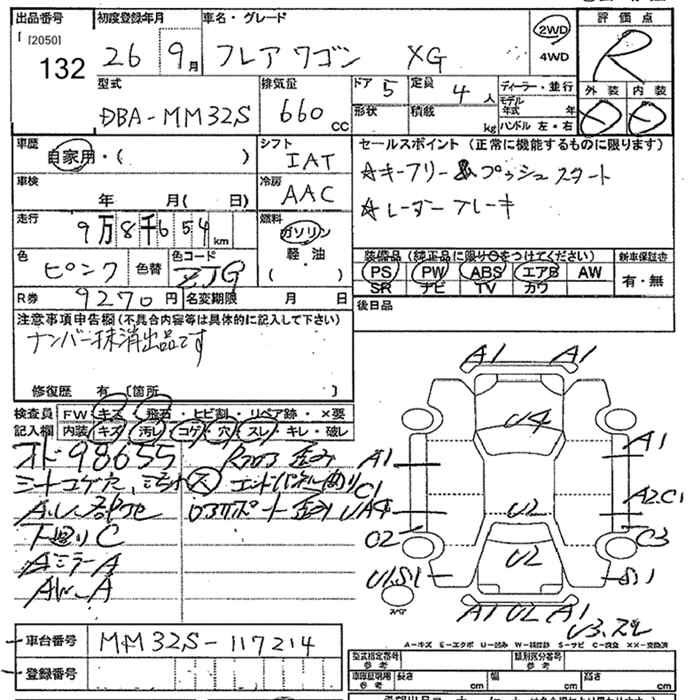 出品番号 初度登録年月 車名・グレード 2WD 評価点
[2050] 26 9月 フレアワゴン XG 4WD R
132
型式 排気量 ドア 5 定員 4人 ディーラー・並行 外装 内装
DBA-MM32S 660cc 形状 積載 kg モデル年式 年
ハンドル 左・右
車歴 自家用・( ) シフト IAT セールスポイント (正常に機能するものに限ります)
車検 年 月( 日) 冷房 AAC ☆キーフリー プッシュスタート
☆レーダーブレーキ
走行 9万8千654km 燃料 ガソリン
色 ピンク 色替 色コード ZJG 軽・油 ( )
装備品 (純正品に限り○をつけてください) 新車保証書
PS PW ABS エアB AW 有・無
SR ナビ TV カワ
R券 9270円 名変期限 月 日 後日品
注意事項申告欄(不具合内容等は具体的に記入して下さい)
ナンバー抹消出品です
修復歴 有 [箇所 ]
検査員 FW キズ・飛石・ヒビ割・リペア跡・×要
記入欄 内装 キズ 汚レ コゲ 穴 スレ キレ・破レ
オド98655
シートコゲ穴、汚れ
下廻りC
AミラーA
AW-A
A1 A1
U4
A1 A1
U2 A2C1
U2 C3
U1S1 S1
スペア
A1 U2 A1
U3.スレ
A-キズ E-エクボ U-凹み W-補修跡 S-サビ C-腐食 XX-交換済
車台番号 MM32S-117214
登録番号
型式指定番号 参考 類別区分番号 参考
車庫証明用 参考 長さ cm 幅 cm 高さ cm